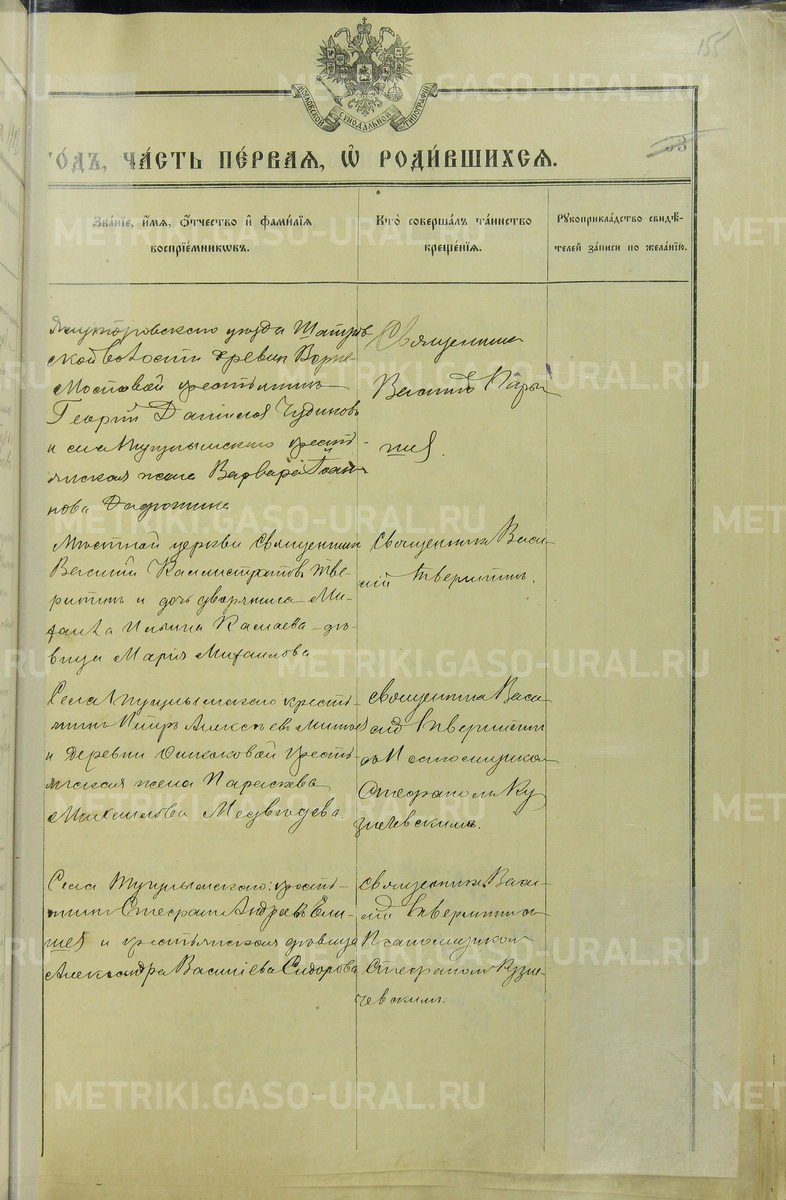 155
МОСКОВСКОЙ СѴНОДАЛЬНОЙ ТИПОГРАФІИ
ГОДЪ, ЧАСТЬ ПЕРВАЯ, Ѡ РОДИВШИХСЯ.
53
Званіе, имя, отчество и фамилія
воспріемниковъ.
Кто совершалъ таинство
крещенія.
Рукоприкладство свидѣ-
телей записи по желанію.
Ялуторовскаго уѣзда Шатров
ской волости деревни Верхне-
Мостовой крестьянинъ
Георгій Даніиловъ Чудиновъ
и села Тугулымскаго крестъ-
янская жена Варвара Іоан
нова
Священникъ
Василій
Мѣстной церкви Священникъ
Василій Каллистратовъ Тве-
ритинъ и дочь дворянина Ми-
хаила Ильина
вица Марія Михаилова
Священникъ Васи-
лій Тверитинъ.
Села Тугулымскаго кресть-
янинъ Петръ Алексѣевъ
и деревни крестъ
янская жена Параскева
Михаилова Медвѣдева.
Священникъ Васи
лій Тверитин
ъ Псаломщикомъ
Стефаномъ Куз
нечевскимъ.
Села Тугулымскаго: кресть-
янинъ Стефанъ Андреевъ
и крестьянская дѣвица
Александра Василіева Сидорова
Священникъ Васи-
лій Тверитинъ
Псаломщикомъ
Стефаномъ Кузне-
чевскимъ.
METRIKI.GASO-URAL.RU